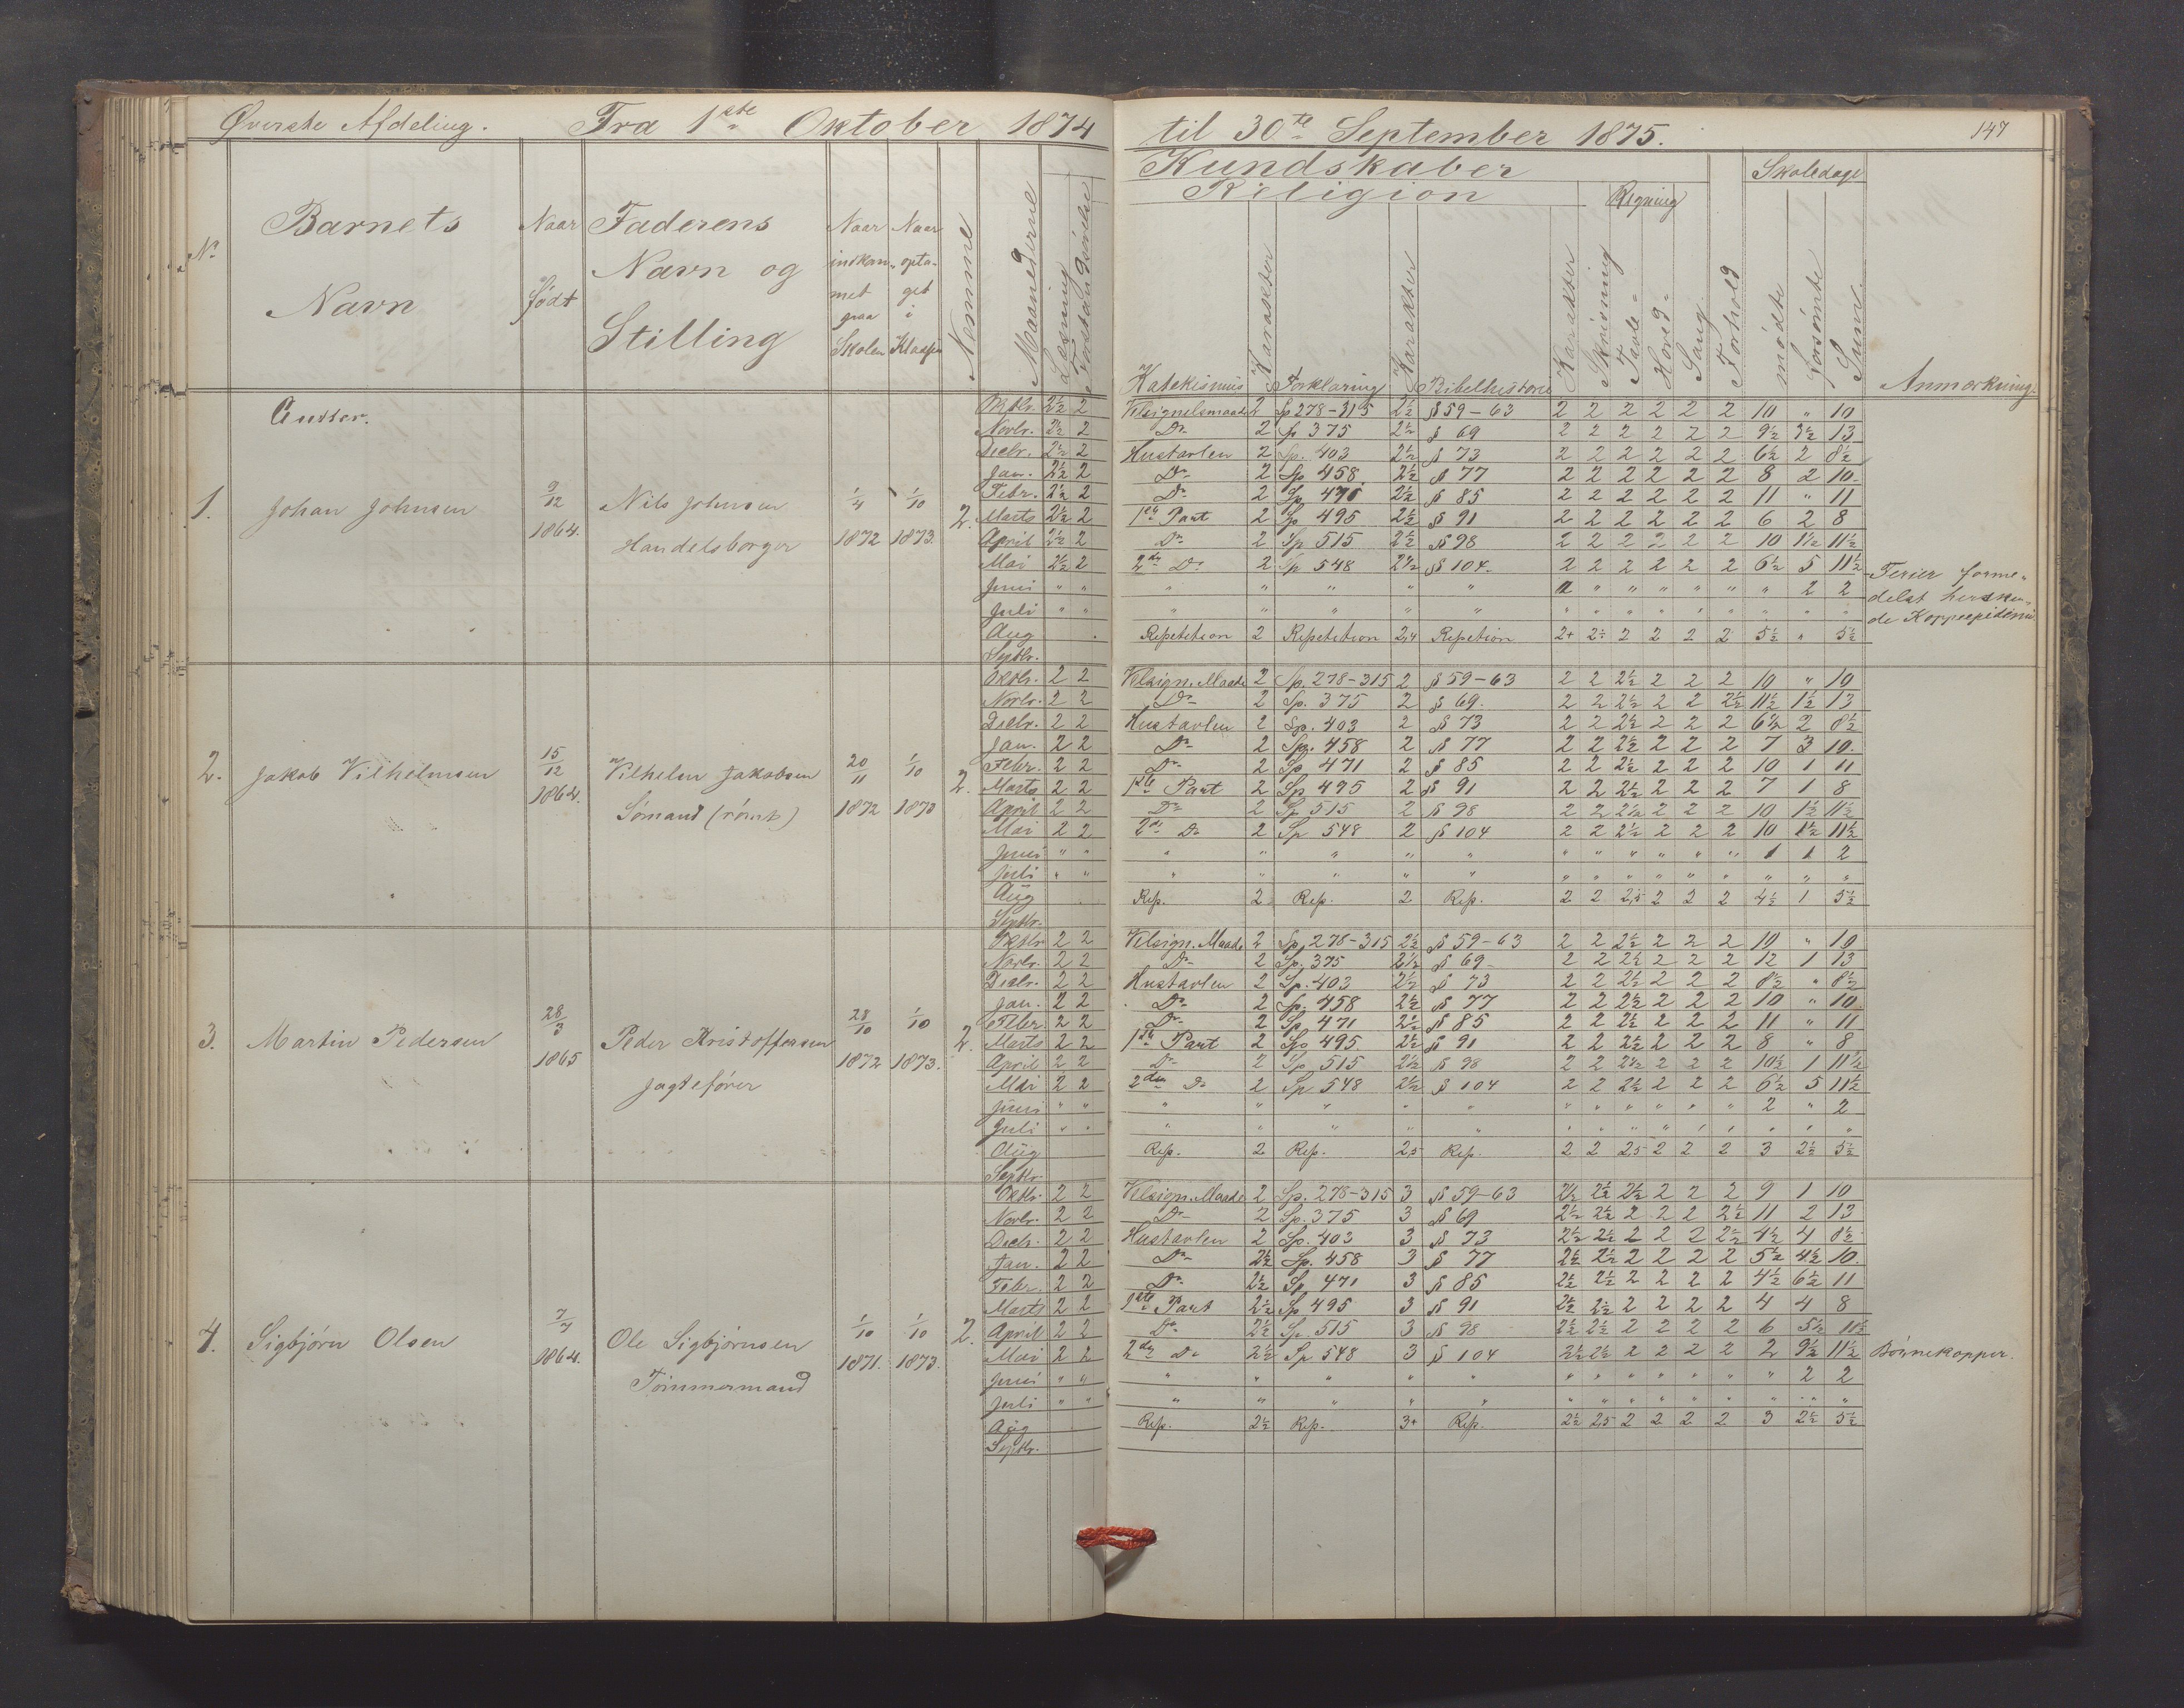 Øverste Afdeling. Fra 1ste Oktober 1874 til 30te September 1875. 147
Kundskaber
Religion Regning Skoledage
No Barnets Navn Naar født Faderens Navn og Stilling Naar indkommet paa Skolen Naar optaget i Klassen Nemme Maanederne Læsning Forstandsøvelse
Katekismus Karakter Forklaring Karakter Bibelhistorie Karakter Skrivning Tavle- Hoved- Sang. Forhold mødte forsømte Sum. Anmærkning.
Gutter.
1. Johan Johnsen 9/12 1864. Nils Johnsen Handelsborger 1/4 1872 1/10 1873. 2.
Oktbr. 2½ 2 Velsignelsmaade 2 Sp 278-315 2½ § 59-63 2 2 2 2 2 2 10 " 10
Novbr. 2½ 2 Do 2 Sp 375 2½ § 69 2 2 2 2 2 2 9½ 3½ 13
Decbr. 2½ 2 Hustavlen 2 Sp. 403 2½ § 73 2 2 2 2 2 2 6½ 2 8½
Jan. 2½ 2 Do 2 Sp 458 2½ § 77 2 2 2 2 2 2 8 2 10.
Febr. 2½ 2 Do 2 Sp 471 2½ § 85 2 2 2 2 2 2 11 " 11
Marts 2½ 2 1ste Part 2 Sp 495 2½ § 91 2 2 2 2 2 2 6 2 8
April 2½ 2 Do 2 Sp 515 2½ § 98 2 2 2 2 2 2 10 1½ 11½
Mai 2½ 2 2den Do 2 Sp 548 2½ § 104. 2 2 2 2 2 2 6½ 5 11½
Juni " " " " " " " " " " " " " 2 2
Juli " " " " " " " " " " " " " " "
Ferier forme-
delst hersken-
de Koppeepidemi
Aug Repetition 2 Repetition 2,4 Repetion 2+ 2÷ 2 2 2 2 5½ " 5½
Septbr.
2. Jakob Vilhelmsen 15/12 1864. Vilhelm Jakobsen Sømand (rømt) 20/11 1872 1/10 1873 2.
Oktbr. 2 2 Velsign. Maade 2 Sp. 278-315 2 § 59-63 2 2 2½ 2 2 2 10 " 10
Novbr. 2 2 Do 2 Sp. 375 2 § 69. 2 2 2½ 2 2 2½ 11½ 1½ 13
Decbr. 2 2 Hustavlen 2 Sp. 403 2 § 73 2 2 2½ 2 2 2 6½ 2 8½
Jan. 2 2 Do 2 Sp. 458 2 § 77 2 2 2½ 2 2 2 7 3 10.
Febr. 2 2 Do 2 Sp 471 2 § 85 2 2 2½ 2 2 2 10 1 11
Marts 2 2 1ste Part 2 Sp 495 2 § 91 2 2 2½ 2 2 2 7 1 8
April 2 2 Do 2 Sp 515 2 § 98 2 2 2½ 2 2 2 10 1½ 11½
Mai 2 2 2den Do 2 Sp 548 2 § 104 2 2 2½ 2 2 2 10 1½ 11½
Juni " " " " " " " " " " " " " 1 1 2
Juli " " " " " " " " " " " " " " " "
Aug Rep. 2 Rep. 2 Rep. 2 2 2,5 2 2 2 4½ 1 5½
Septbr.
3. Martin Pedersen 28/3 1865 Peder Kristoffersen Jagtefører 28/10 1872 1/10 1873. 2.
Oktbr 2 2 Velsign. Maade 2 Sp. 278-315 2½ § 59-63 2 2 2½ 2 2 2 10 " 10
Novbr. 2 2 Do 2 Sp. 375 2½ § 69- 2 2 2½ 2 2 2 12 1 13
Decbr. 2 2 Hustavlen 2 Sp. 403 2½ § 73 2 2 2½ 2 2 2 8½ " 8½
Jan. 2 2 Do 2 Sp. 458 2½ § 77 2 2 2½ 2 2 2 10 " 10.
Feber. 2 2 Do 2 Sp 471 2½ § 85 2 2 2½ 2 2 2 11 " 11
Marts 2 2 1ste Part 2 Sp 495 2½ § 91 2 2 2½ 2 2 2 8 " 8
April 2 2 Do 2 Sp 515 2½ § 98 2 2 2½ 2 2 2 10½ 1 11½
Mai 2 2 2den Do 2 Sp 548 2½ § 104 2 2 2½ 2 2 2 6½ 5 11½
Juni " " " " " " " " " " " " " 2 " 2
Juli " " " " " " " " " " " " " " " "
Aug Rep. 2 Rep. 2,5 Rep. 2 2 2,5 2 2 2 3 2½ 5½
Septbr.
4. Sigbjørn Olsen 7/7 1864. Ole Sigbjørnsen Tømmermand 1/10 1871. 1/10 1873. 2.
Oktbr. 2 2 Velsign. Maade 2 Sp. 278-315 3 § 59-63 2½ 2½ 2½ 2 2 2 9 1 10
Novbr. 2 2 Do 2 Sp. 375 3 § 69 2½ 2½ 2 2 2 2½ 11 2 13
Decbr. 2 2 Hustavlen 2 Sp. 403 3 § 73 2½ 2½ 2 2 2 2½ 4½ 4 8½
Jan. 2 2 Do 2½ Sp. 458 3 § 77 2½ 2½ 2 2 2 2 5½ 4½ 10.
Febr. 2 2 Do 2½ Sp 471 3 § 85 2½ 2½ 2 2 2 2 4½ 6½ 11
Marts 2 2 1ste Part 2½ Sp 495 3 § 91 2½ 2½ 2 2 2 2 4 4 8
April 2 2 Do 2½ Sp. 515 3 § 98 2½ 2½ 2 2 2 2 6 5½ 11½
Mai 2 2 2den Do 2½ Sp 548 3 § 104 2½ 2½ 2 2 2 2 2 9½ 11½ Børnekopper.
Juni " " " " " " " " " " " " " " 2 2
Juli " " " " " " " " " " " " " " " "
Aug Rep. 2½ Rep. 3+ Rep. 2½ 2,5 2 2 2 2 3 2½ 5½
Septbr.